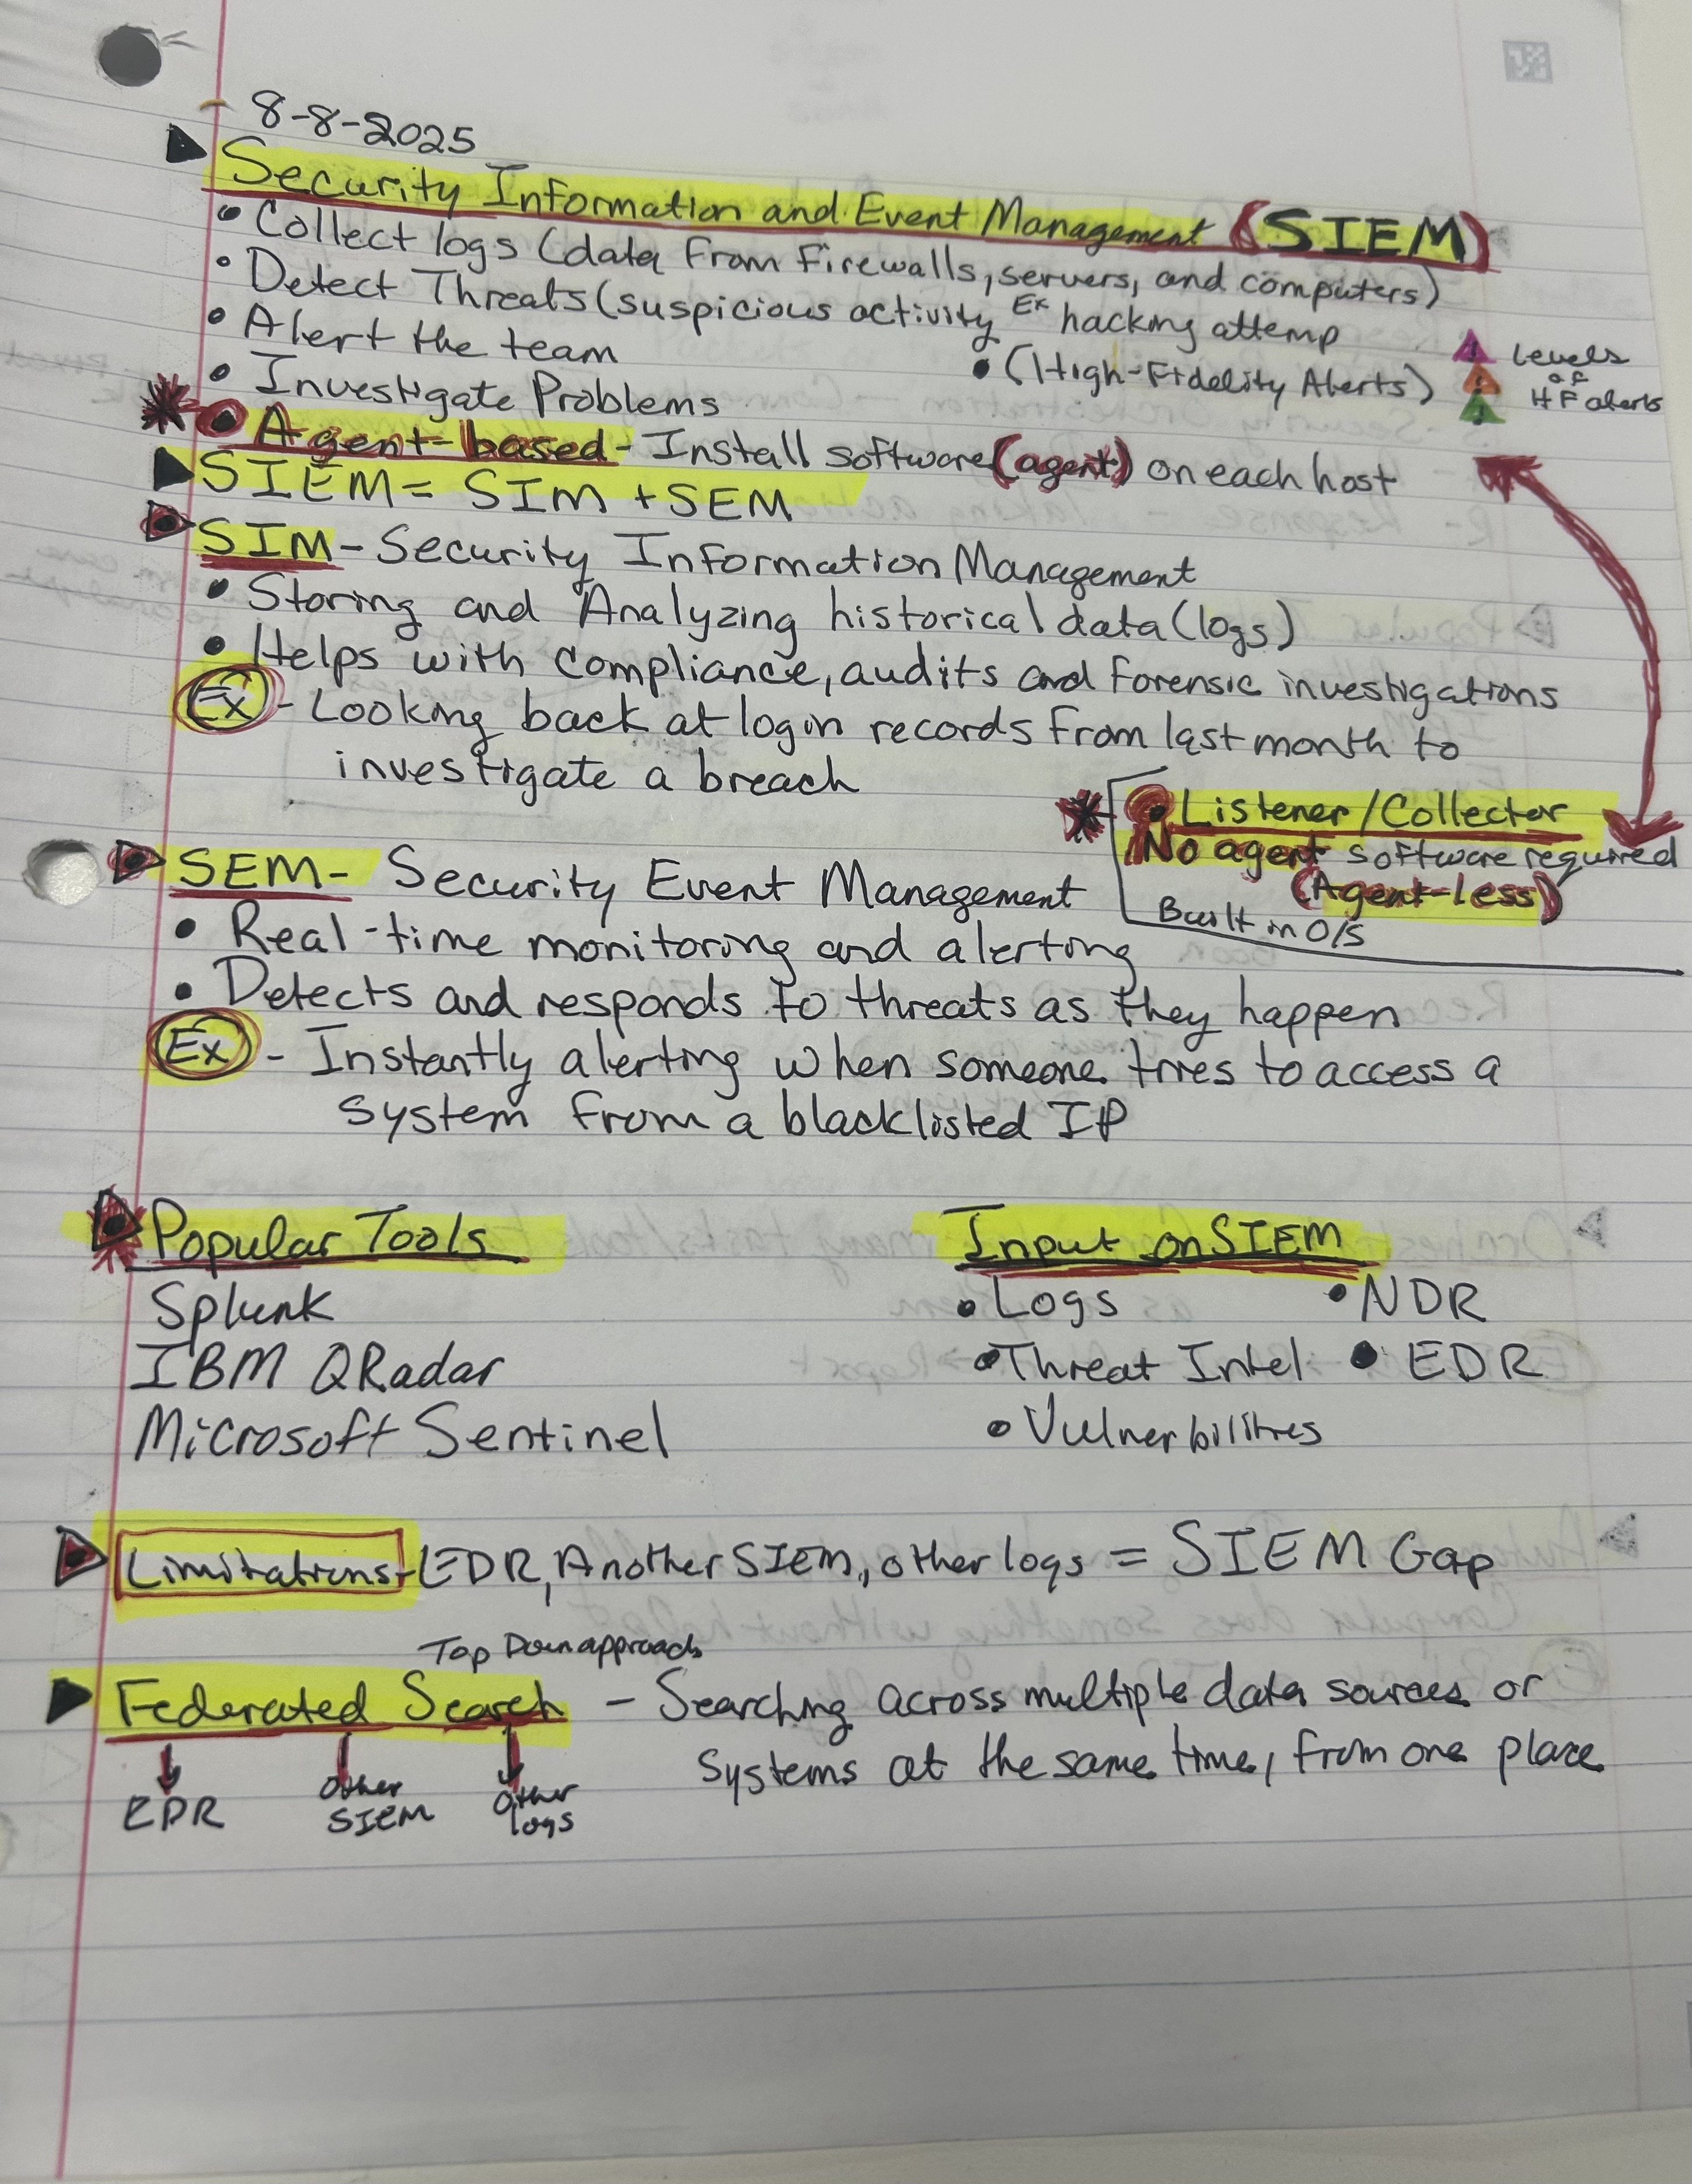 8-8-2025
Security Information and Event Management (SIEM)
• Collect logs (data from firewalls, servers, and computers)
• Detect Threats (suspicious activity Ex hacking attemp
• Alert the team
• (High-Fidelity Alerts)
Levels
of
HF alerts
• Investigate Problems
• Agent-based - Install software (agent) on each host
SIEM = SIM + SEM
SIM - Security Information Management
• Storing and Analyzing historical data (logs)
• Helps with compliance, audits and forensic investigations
Ex - Looking back at login records from last month to
investigate a breach
• Listener/Collector
No agent software required
(Agent-less)
Built in O/S
SEM - Security Event Management
• Real-time monitoring and alerting
• Detects and responds to threats as they happen
Ex - Instantly alerting when someone tries to access a
system from a blacklisted IP
Popular Tools
Splunk
IBM QRadar
Microsoft Sentinel
Input on SIEM
• Logs • NDR
• Threat Intel • EDR
• Vulnerbilities
Limitations - EDR, Another SIEM, other logs = SIEM Gap
Top Down approach
Federated Search - Searching across multiple data sources or
systems at the same time, from one place
EDR
other
SIEM
other
logs